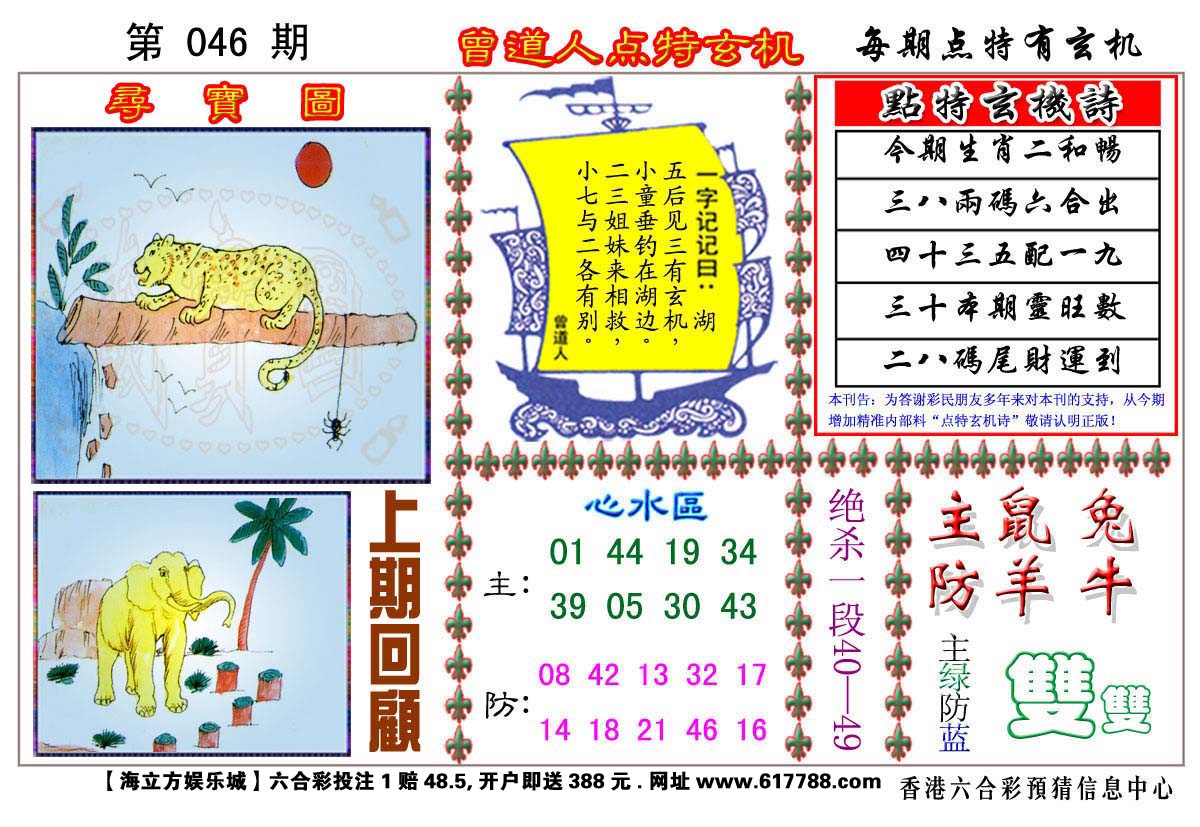 第 046 期
曾道人点特玄机
每期点特有玄机
尋寶圖
一字记记曰：湖
五后见三有玄机，
小童垂钓在湖边。
二三姐妹来相救，
小七与二各有别。
曾道人
點特玄機詩
今期生肖二和暢
三八兩碼六合出
四十三五配一九
三十本期靈旺數
二八碼尾財運到
本刊告：为答谢彩民朋友多年来对本刊的支持，从今期
增加精准内部料“点特玄机诗”敬请认明正版！
上期回顧
心水區
主：
01 44 19 34
39 05 30 43
防：
08 42 13 32 17
14 18 21 46 16
绝杀一段40—49
主鼠兔
防羊牛
主绿防蓝
雙雙
【海立方娱乐城】六合彩投注1赔48.5,开户即送388元.网址 www.617788.com
香港六合彩預猜信息中心